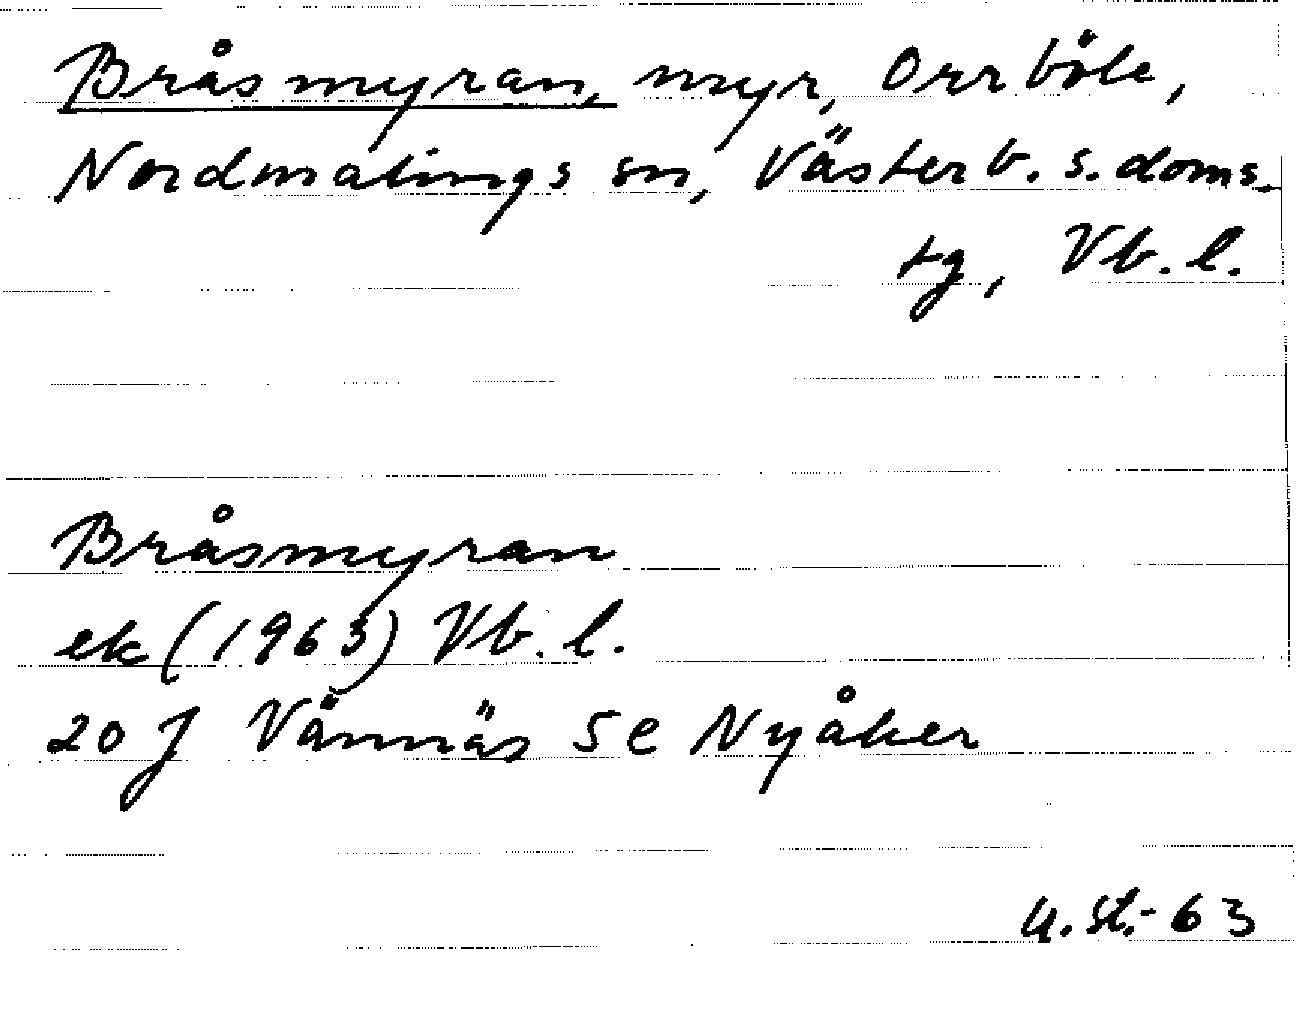 Bråsmyran, myr, Orrböle,
Nordmalings sn, Västerb. s. doms.
tg, Vb. l.
Bråsmyran
ek (1963) Vb. l.
20 J Vännäs 5 e Nyåker
U. St.- 63